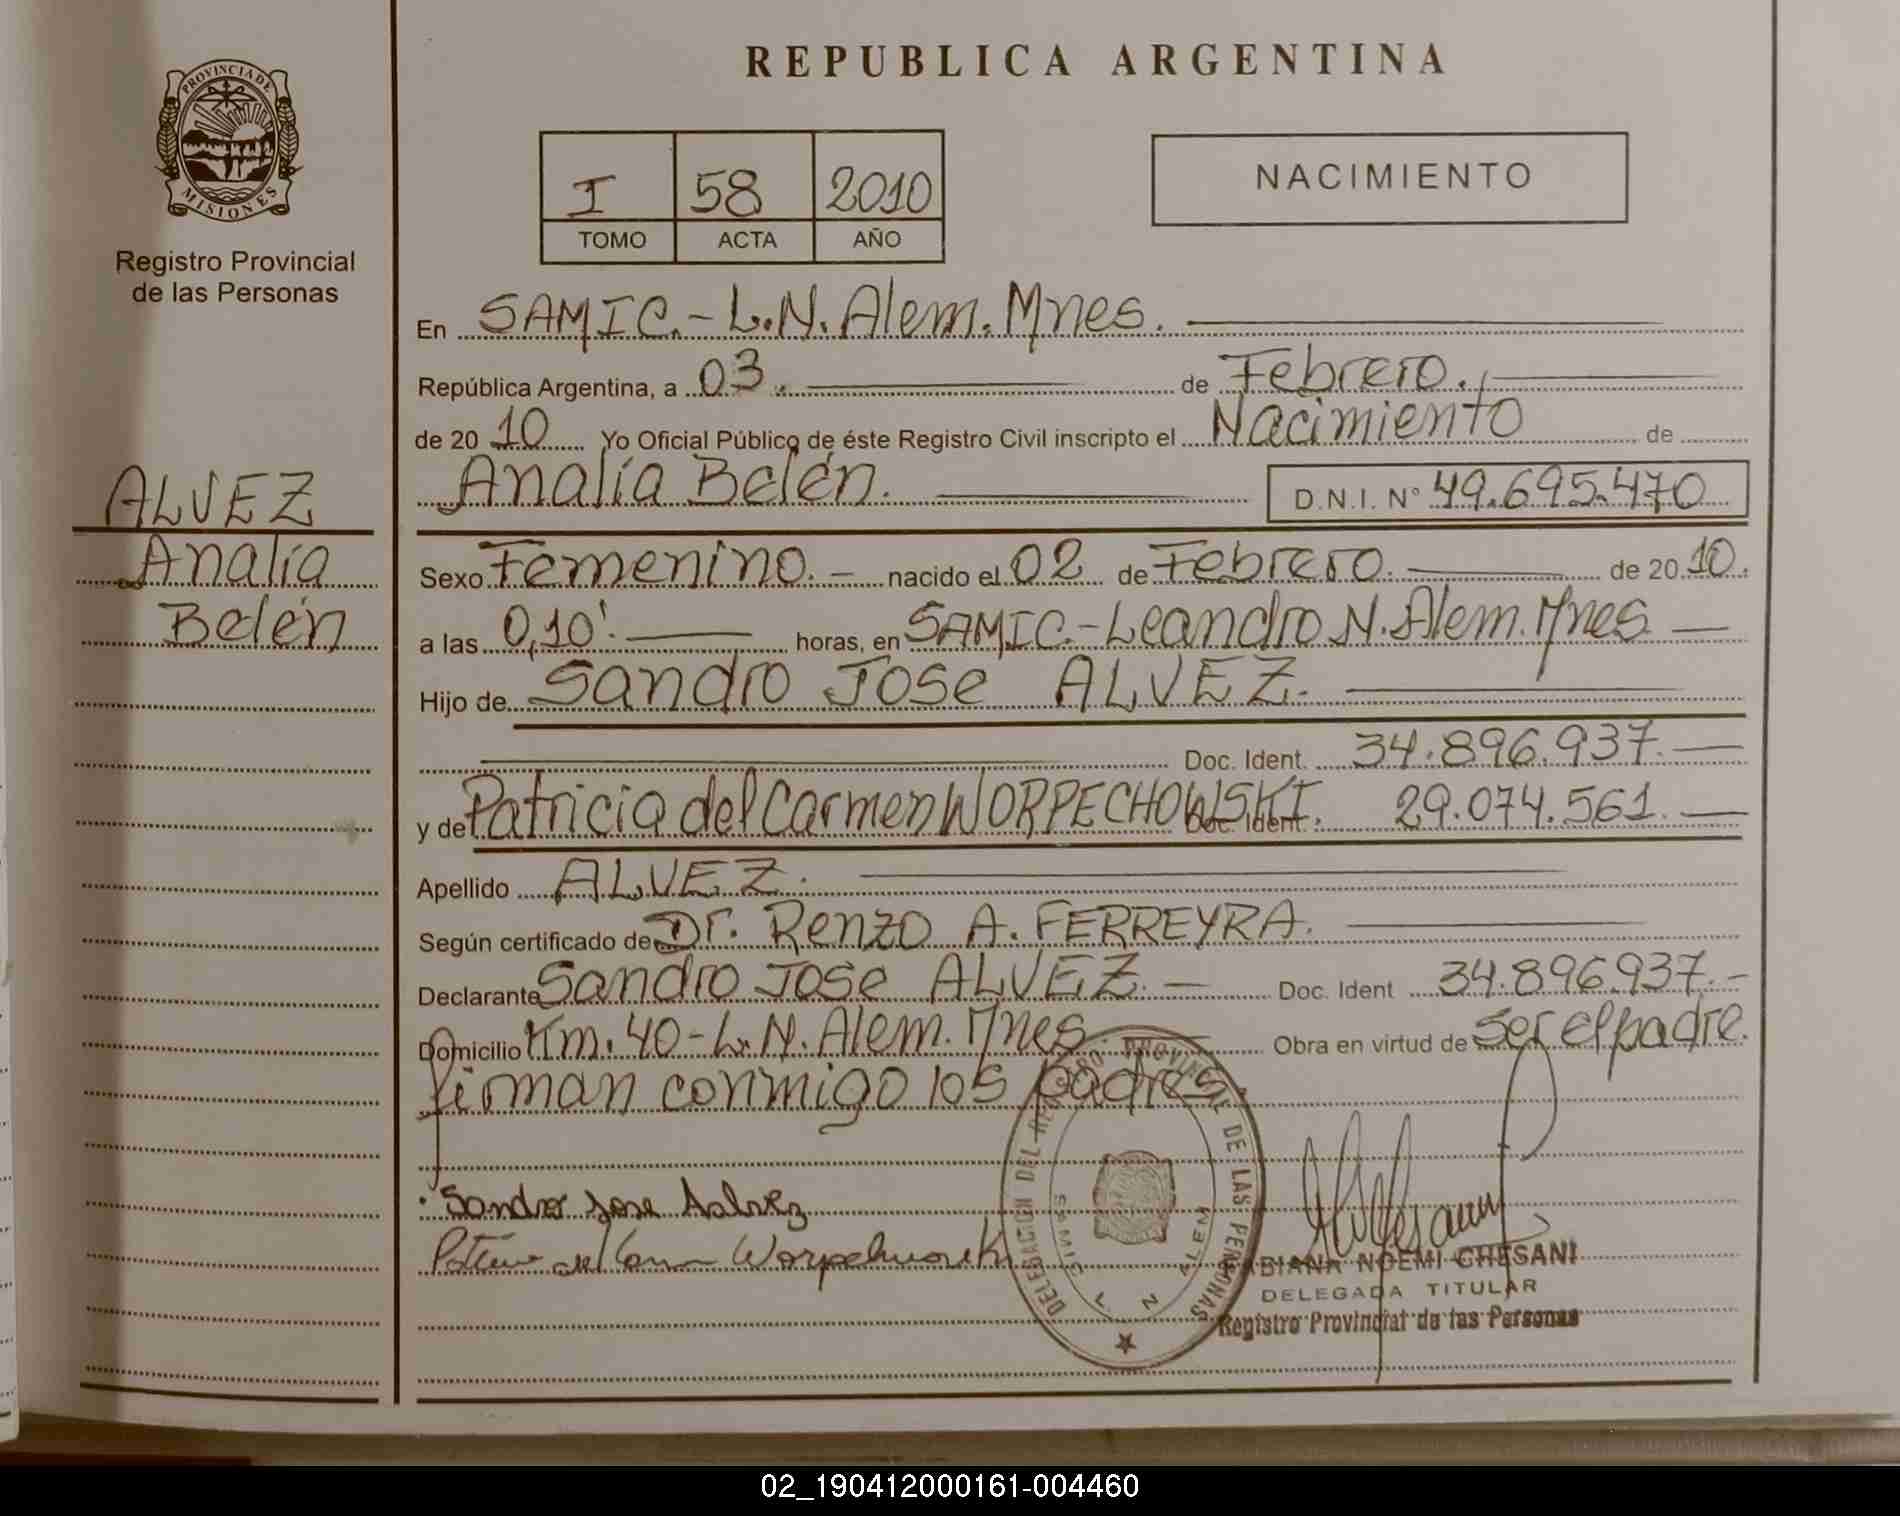 REPUBLICA ARGENTINA
PROVINCIA DE
MISIONES
Registro Provincial
de las Personas
I 58 2010
TOMO ACTA AÑO
NACIMIENTO
En SAMIC.- L.N. Alem. Mnes.
República Argentina, a 03. de Febrero.
de 20 10 Yo Oficial Público de éste Registro Civil inscripto el Nacimiento de
Analía Belén. D.N.I. N° 49.695.470
ALVEZ
Analía
Belén
Sexo Femenino. - nacido el 02 de Febrero. de 20 10.
a las 0,10'. horas, en SAMIC.- Leandro N. Alem. Mnes
Hijo de Sandro Jose ALVEZ.
Doc. Ident. 34.896.937.
y de Patricia del Carmen WORPECHOWSKI. Doc. Ident. 29.074.561.
Apellido ALVEZ.
Según certificado de Dr. Renzo A. FERREYRA.
Declarante Sandro Jose ALVEZ. Doc. Ident 34.896.937.-
Domicilio Km. 40 - L.N. Alem. Mnes Obra en virtud de ser el padre.
firman conmigo los padres.
Sandro Jose
DELEGACION DEL REGISTRO PROVINCIAL DE LAS PERSONAS
SAMIC L. N. ALEM
FABIANA NOEMI GHESANI
DELEGADA TITULAR
Registro Provincial de las Personas
02_190412000161-004460